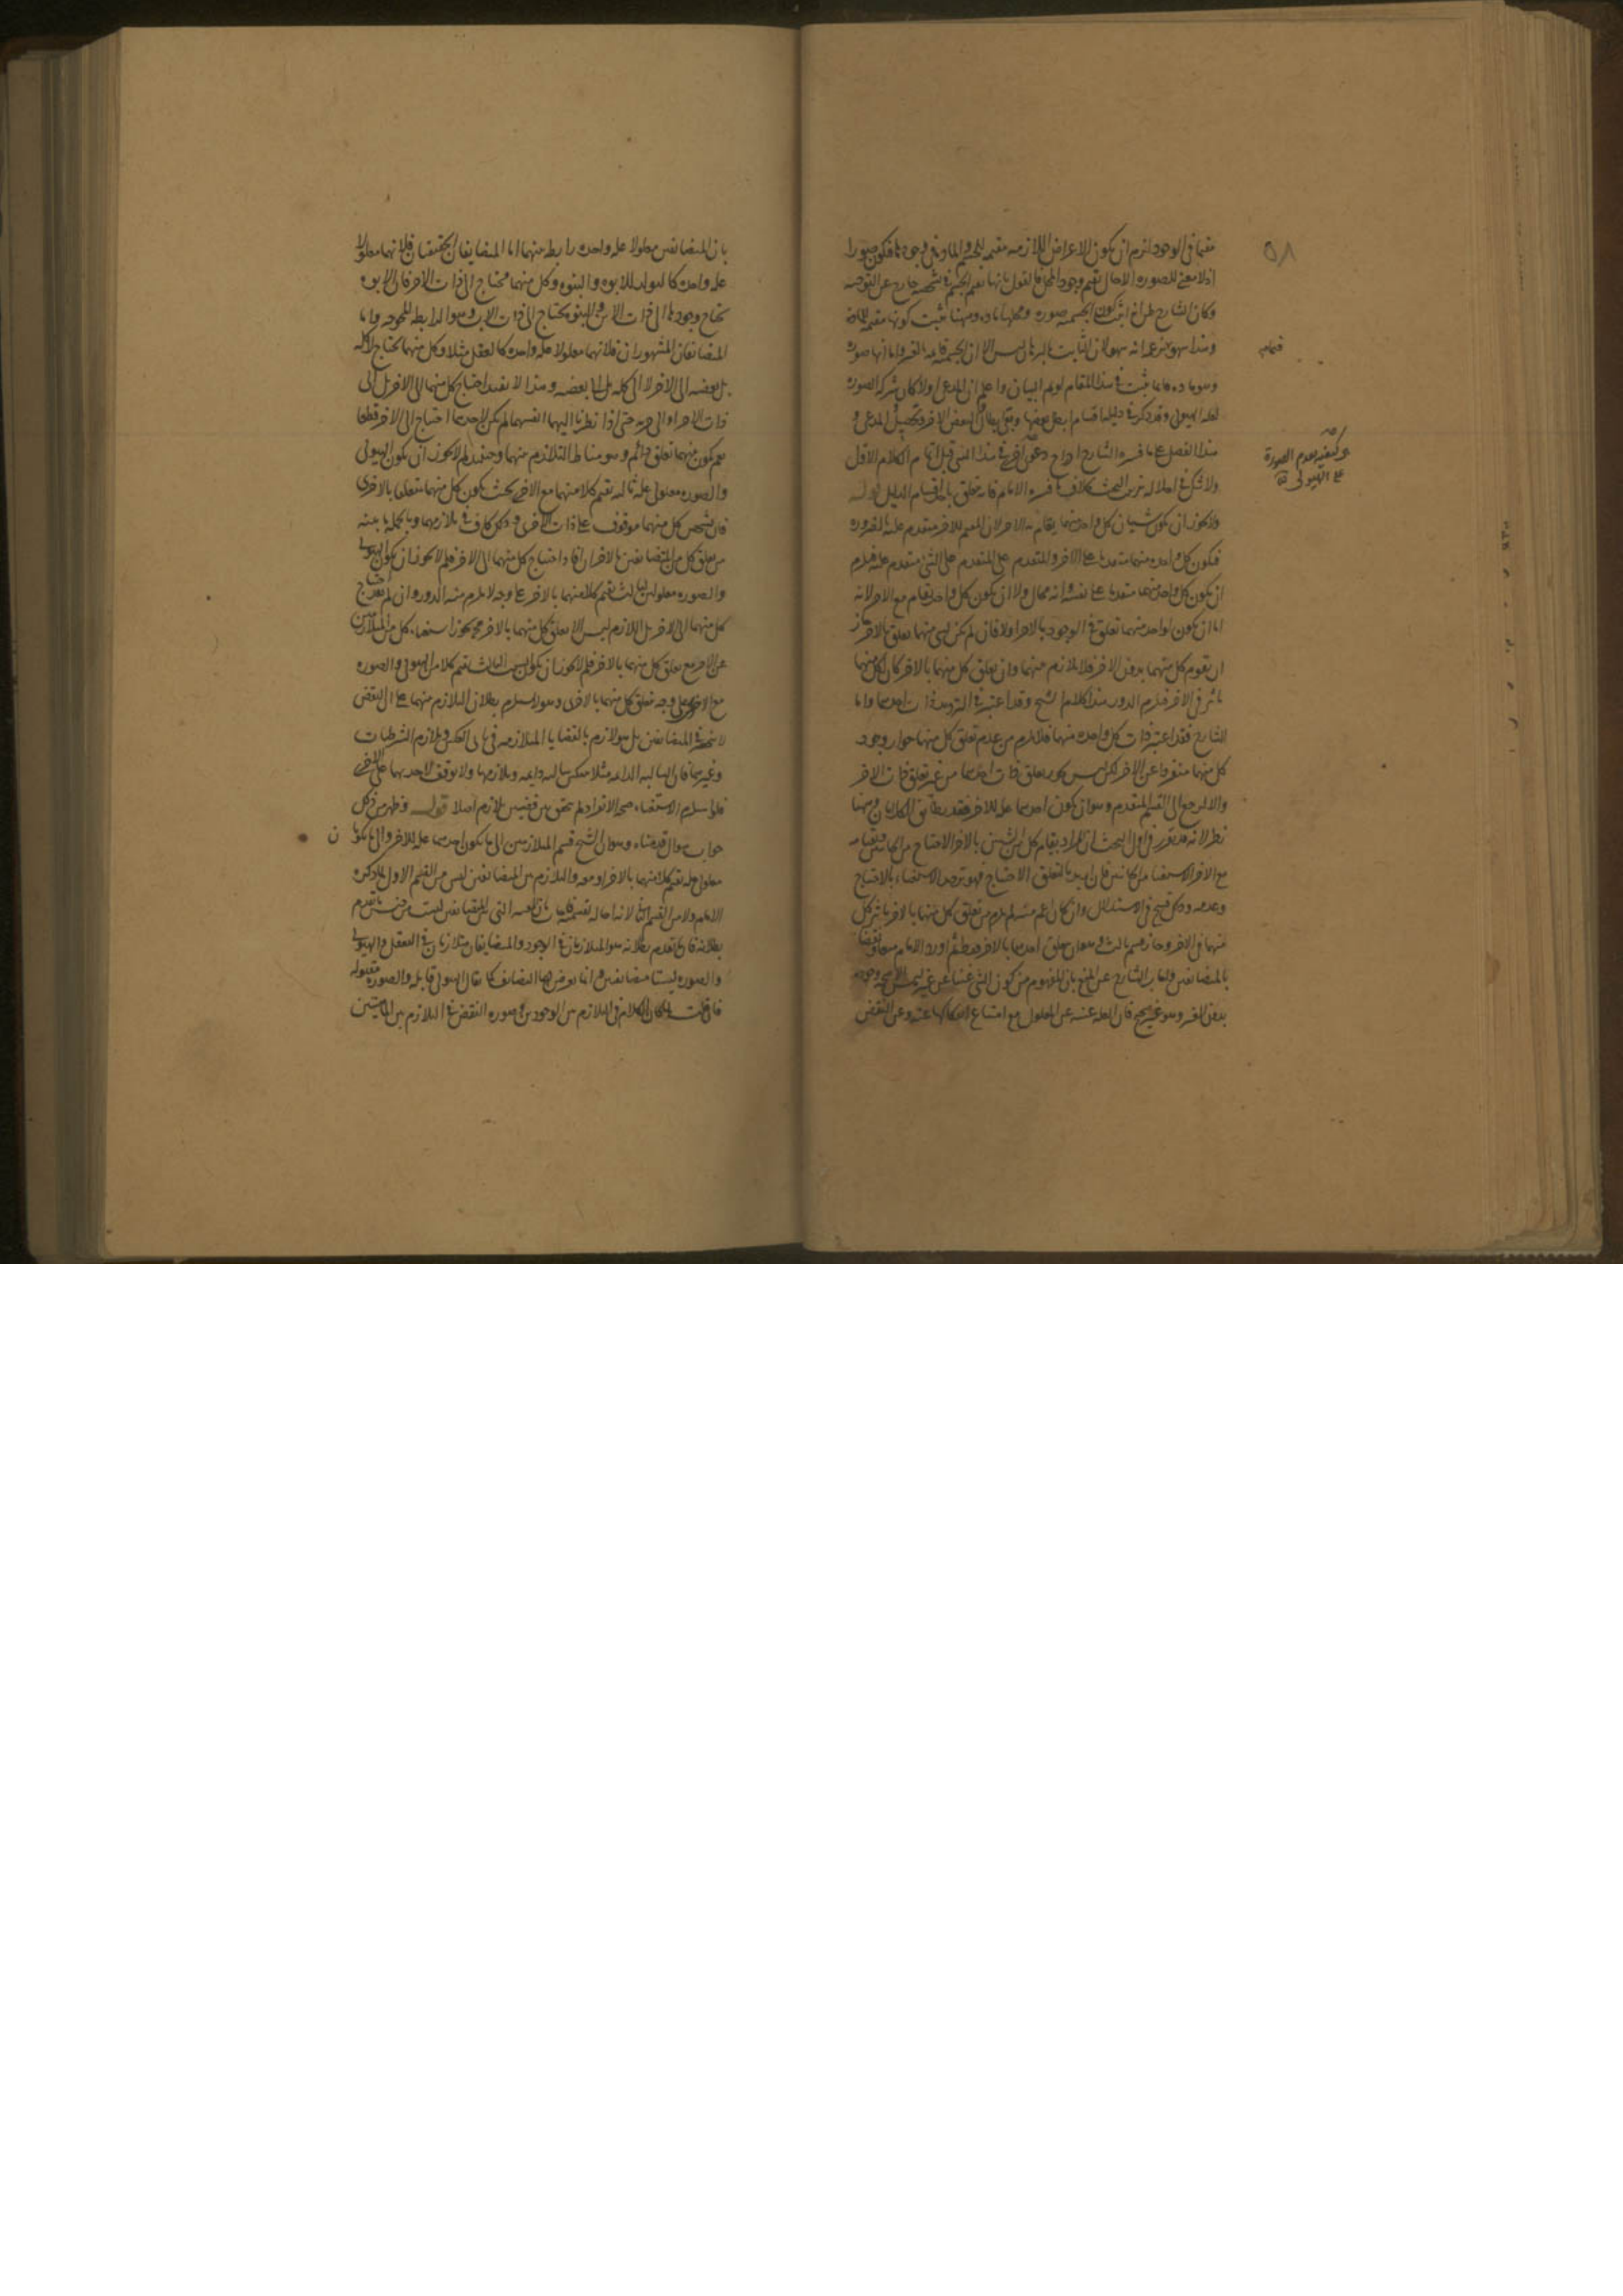 مقيما في الوجود لزم ان يكون الاعراض اللازمه مقيمه للجسم والماده في وجودها فكون صورا
اذ لا معنى للصوره الا حال تقيم وجود المحل فالقول بانها تقيم الجسم في شخصه خارج عن التوجيه
وكان الشارح ظن انه اثبت كون الجسميه صوره ومحلها ماده وههنا يثبت كونها مقيمه للماده
وهذا سهو لان الثابت بالبرهان ليس الا ان الجسميه قايمه بالغير واما انها صوره
وهو ماده فانما يثبت في هذا المقام لو تم البيان واعلم ان المدعى اولا كان شركه الصوره
لعله الهيولى وقد ذكر في دليلها اقسام بطل بعضها وبقي بطلان البعض الاخر وتحصيل المدعى و
هذا الفصل على ما فسره الشارح ادراج دعوى اخرى في هذا الشي قبل اتمام الكلام الاول
ولا شك في اخلاله بترتيب البحث بخلاف ما فسره الامام فانه يتعلق باقسام الدليل قوله
ولا يجوز ان يكون شيان كل واحد منهما يقام به الاخر لان المقيم للاخر متقدم عليه بالضروره
فيكون كل واحد منهما متقدما على الاخر والمتقدم على المتقدم على الشي متقدم عليه فيلزم
ان يكون كل واحد منهما متقدما على نفسه وانه محال ولا ان يكون كل واحد يقام مع الاخر لانه
اما ان يكون لواحد منهما تعلق في الوجود بالاخر اولا فان لم يكن لشي منهما تعلق بالاخر جاز
ان يقوم كل منهما بدون الاخر فلا تلازم منهما وان تعلق كل منهما بالاخر كان لكل منهما
تاثير في الاخر فيلزم الدور هذا كلام الشيخ وقد اعتبر في الترديد ذات احدهما واما
الشارح فقد اعتبر ذات كل واحد منهما فلا يلزم من عدم تعلق كل منهما جواز وجود
كل منهما منفردا عن الاخر لكن ليس يجوز تعلق ذات احدهما من غير تعلق ذات الاخر
والا لرجع الى القسم المتقدم وهو ان يكون احدهما عله للاخر فقد يطابق الكلامان وههنا
نظر لانه قد تقرر في اول البحث ان المراد بقيام كل من الشيئين بالاخر الاحتياج من الجانبين وبقيامه
مع الاخر الاستغناء من الجانبين فان اريد بالتعلق الاحتياج فهو ترديد الاستغناء بالاحتياج
وعدمه وذلك قبيح في الاستدلال وان كان اعم منه لم يلزم من تعلق كل منهما بالاخر تاثير كل
منهما في الاخر وجاز قسم ثالث وهو ان يتعلق احدهما بالاخر فقط ثم اورد الامام نقضا
بالمتضايفين واجاب الشارح عن المنع بان المفهوم من كون الشي غنيا عن غيره ليس الا صحه وجوده
بدون الغير وهو غير صحيح فان العله غنيه عن المعلول مع امتناع انفكاكها عنه وعن النقض
٥٨
في كيفيه تقدم الصورة
على الهيولى
بان المتضايفين معلولا عله واحده رابط بينهما اما المتضايفان الحقيقيان فلانهما معلولا
عله واحده كالتولد للابوه والبنوه وكل منهما محتاج الى ذات الاخر فان الابوه
تحتاج وجودها الى ذات الابن والبنوه تحتاج الى ذات الاب وهو الرابط المحوجه واما
المتضايفان المشهوران فلانهما معلولا عله واحده كالعقل مثلا وكل منهما يحتاج لا كله
بل بعضه الى الاخر لا الى كله بل الى بعضه وهذا لا يفيد احتياج كل منهما الى الاخر بل الى
ذات الاخر او الى جزئه حتى اذا نظرنا اليهما انفسهما لم يكن لاحدهما احتياج الى الاخر قطعا
نعم يكون منهما تعلق دائم وهو مناط التلازم منهما وحينئذ لم لا يجوز ان يكون الهيولى
والصوره معلولي عله ثالثه تقيم كلا منهما مع الاخرى بحيث يكون كل منهما متعلقا بالاخرى
فان تشخص كل منهما موقوف على ذات الاخرى وذلك كاف في تلازمهما وبالجمله ما بينه
من تعلق كل من المتضايفين بالاخر ان افاد احتياج كل منهما الى الاخر فلم لا يجوز ان يكون الهيولى
والصوره معلولين لثالث يقيم كلا منهما بالاخر على وجه لا يلزم منه الدور وان لم يفد احتياج
كل منهما الى الاخر بل اللازم ليس الا تعلق كل منهما بالاخر فح يجوز استغناء كل من المتلازمين
عن الاخر مع تعلق كل منهما بالاخر فلم لا يجوز ان يكون الثالث يقيم كلا من الهيولى والصوره
مع الاخرى على وجه تعلق كل منهما بالاخرى وهو لا يستلزم بطلان التلازم منهما على ان النقض
لا ينحصر في المتضايفين بل هو لازم بالقضايا المتلازمه في باب العكس وتلازم الشرطيات
وغيرهما فان السالبه الدائمه مثلا تنعكس سالبه دائمه وتلازمها ولا توقف لاحديهما على الاخرى
فلو استلزم الاستغناء صحه الانفراد لم يتحقق بين قضيتين تلازم اصلا قوله وظهر من ذلك
جواب سؤال قدمناه وهو ان الشيخ قسم المتلازمين الى ما يكون احدهما عله للاخر والى ما يكونا ن
معلولي عله تقيم كلا منهما بالاخر او معه والتلازم بين المتضايفين ليس من القسم الاول لما ذكره
الامام ولا من القسم الثاني لانه احاله
بطلانه فان ما تقدم بطلانه هو المتلازمان في الوجود والمتضايفان متلازمان في التعقل والهيولى
والصوره ليستا متضايفتين وانما يعرض لهما التضايف كما يقال الهيولى قابله والصوره مقبوله
فان قلت لما كان الكلام في التلازم بين الوجودين وصوره النقض في التلازم بين الماهيتين